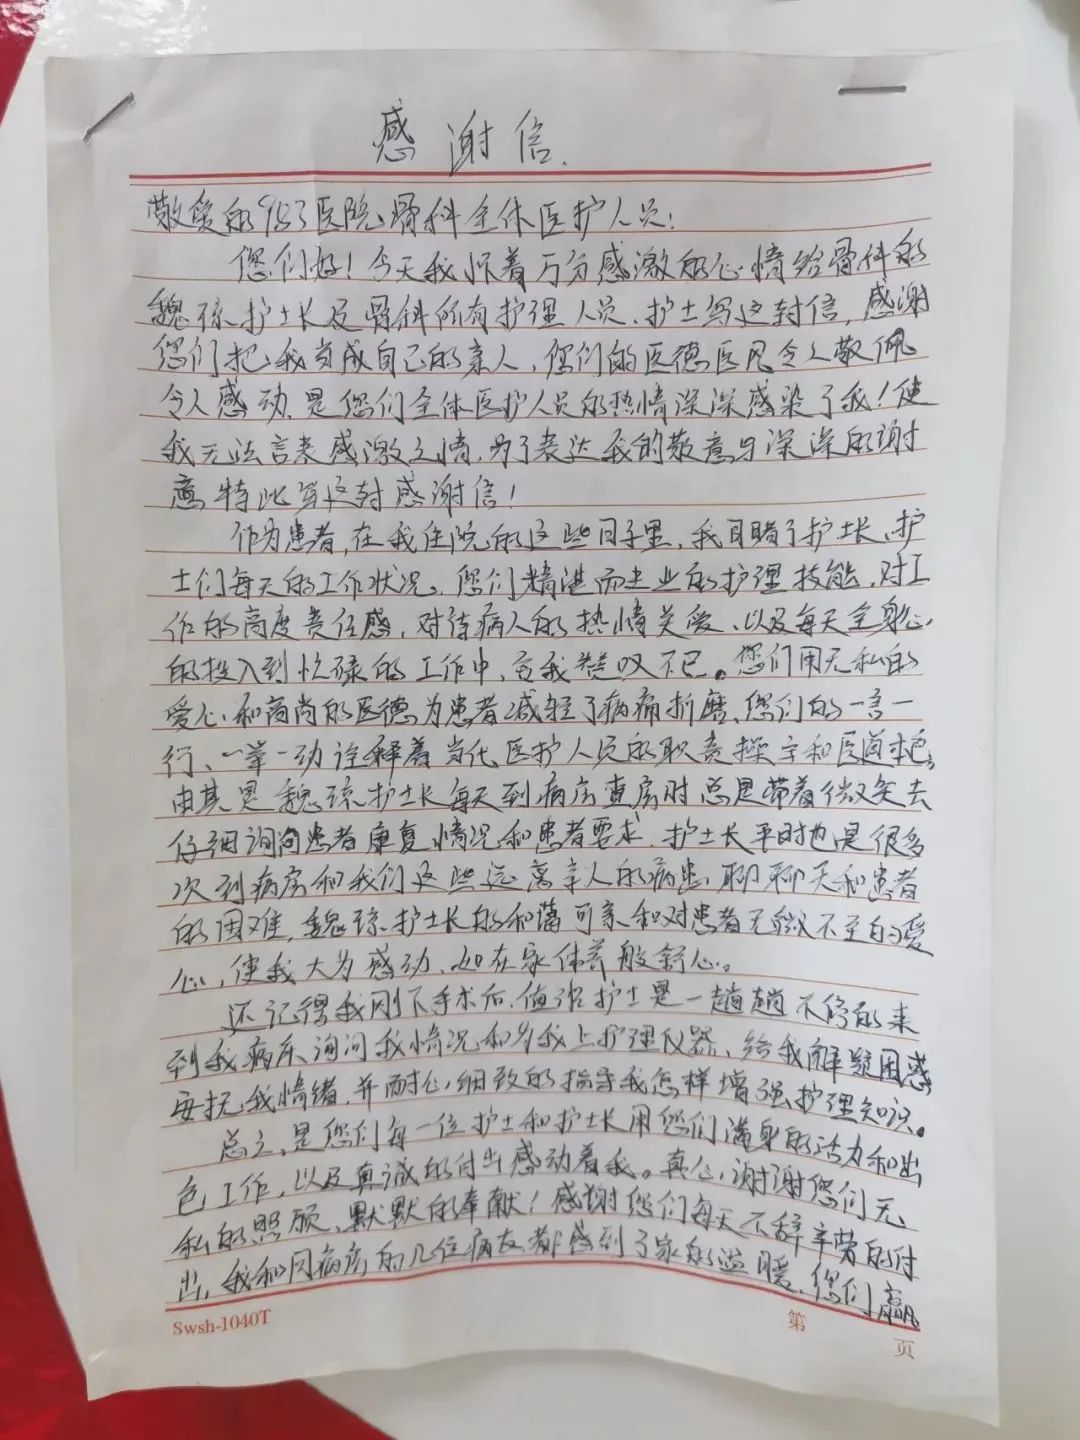 感谢信.
敬爱的953医院骨科全体医护人员:
您们好!今天我怀着万分感激的心情给骨科的
魏琼护士长及骨科所有护理人员、护士写这封信,感谢
您们把我当成自己的亲人,您们的医德医风令人敬佩
令人感动.是您们全体医护人员的热情深深感染了我!使
我无法言表感激之情,为了表达我的敬意与深深的谢
意特此写这封感谢信!
作为患者,在我住院的这些日子里,我目睹了护士长、护
士们每天的工作状况。您们精湛而专业的护理技能,对工
作的高度责任感,对待病人的热情关爱、以及每天全身心
的投入到忙碌的工作中,令我赞叹不已。您们用无私的
爱心和高尚的医德为患者减轻了病痛折磨、您们的一言一
行、一举一动诠释着当代医护人员的职责操守和医道本色,
由其是魏琼护士长每天到病房查房时总是带着微笑去
仔细询问患者康复情况和患者要求.护士长平时也是很多
次到病房和我们这些远离亲人的病患聊聊天和患者
的困难,魏琼护士长的和蔼可亲和对患者无微不至的爱
心,使我大为感动、如在家休养般舒心。
还记得我刚下手术后.值班护士是一趟趟不停的来
到我病床询问我情况和为我上护理仪器、给我解疑困惑
安抚我情绪.并耐心细致的指导我怎样增强护理知识。
总之.是您们每一位护士和护士长用您们满身的活力和出
色工作,以及真诚的付出感动着我。真心谢谢您们无
私的照顾、默默的奉献!感谢您们每天不辞辛劳的付
出,我和同病房的几位病友都感到了家的温暖、您们赢
Swsh-1040T
第
页